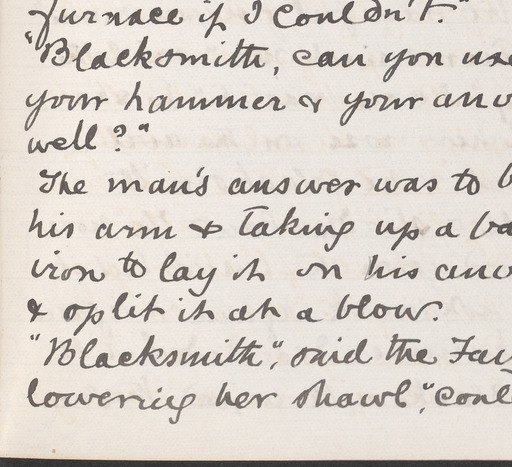 furnace if I couldn't."
"Blacksmith, can you use
your hammer & your anv
well?"
The man's answer was to b
his arm & taking up a ba
iron to lay it on his anv
& split it at a blow.
"Blacksmith", said the Fai
lowering her shawl, "coul